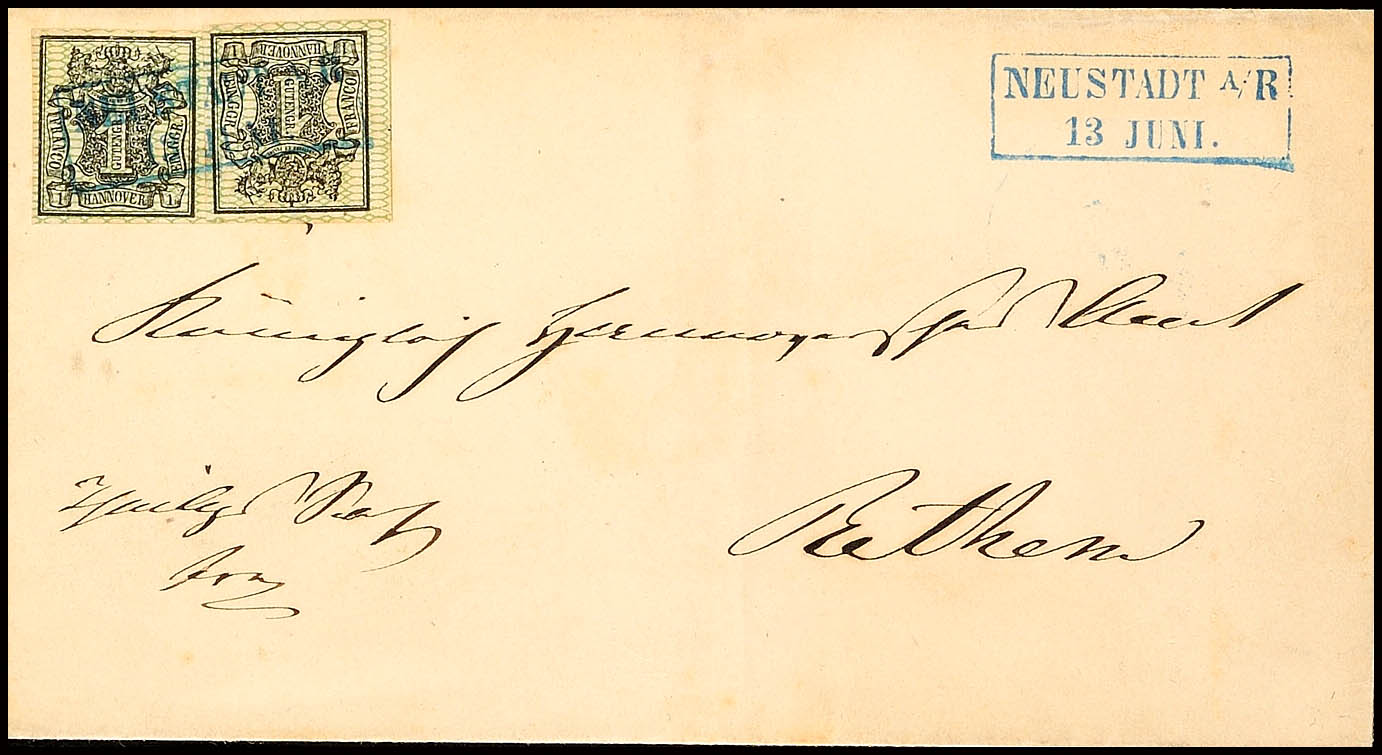 FRANCO
1
GUTENGR
EIN.GGR.
1 HANNOVER 1
1 HANNOVER 1
EIN.GGR.
1
GUTENGR.
FRANCO
NEUSTADT A/R
13 JUNI.
Königlich Hannoversches Amt
Rethem